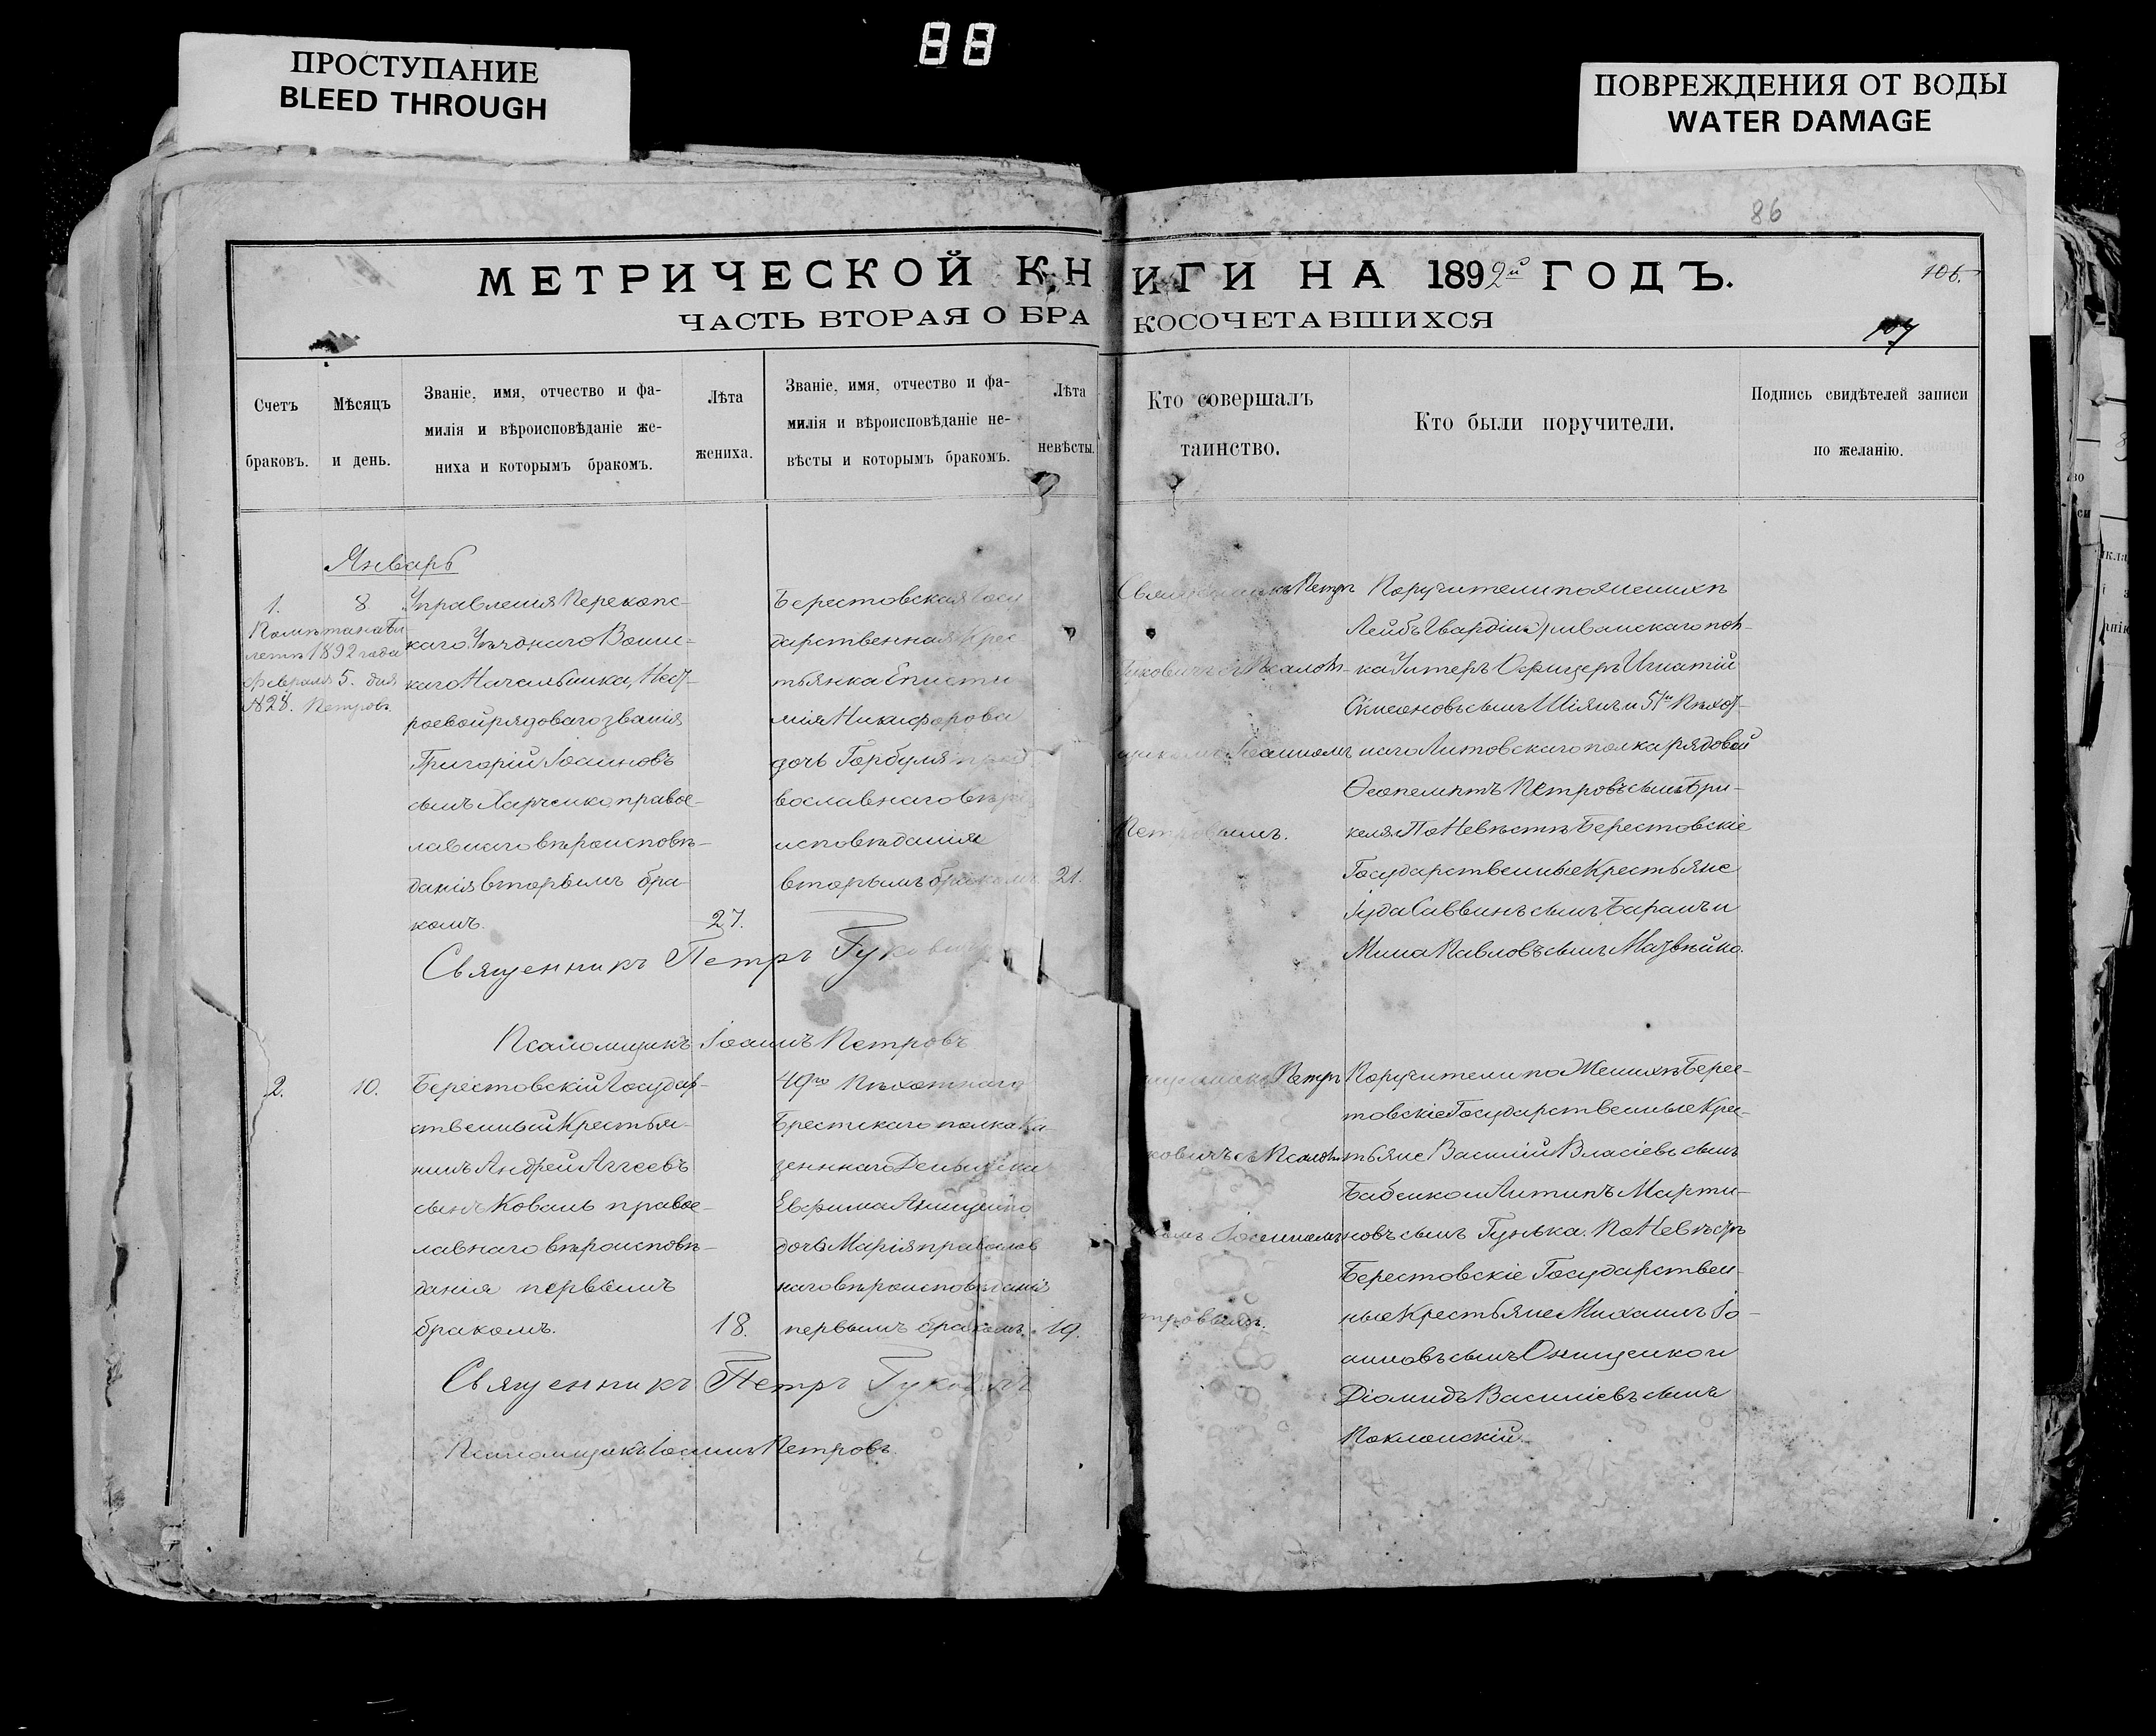 88
ПРОСТУПАНИЕ
BLEED THROUGH
ПОВРЕЖДЕНИЯ ОТ ВОДЫ
WATER DAMAGE
86
МЕТРИЧЕСКОЙ КНИГИ НА 1892й ГОДЪ.
106.
ЧАСТЬ ВТОРАЯ О БРАКОСОЧЕТАВШИХСЯ
Счетъ
браковъ.
Мѣсяцъ
и день.
Званіе, имя, отчество и фа-
милія и вѣроисповѣданіе же-
ниха и которымъ бракомъ.
Лѣта
жениха.
Званіе, имя, отчество и фа-
милія и вѣроисповѣданіе не-
вѣсты и которымъ бракомъ.
Лѣта
невѣсты.
Кто совершалъ
таинство.
Кто были поручители.
Подпись свидѣтелей записи
по желанію.
Январь
1.
8
1892 года
Февраля 5. дня
№ 28. Петровъ.
Управленія Перекопс-
каго Уѣзднаго Воинс-
каго Начальника, Нест-
роевой рядоваго званія
Григорій Іоанновъ
сынъ Харченко правос-
лавнаго вѣроисповѣ-
данія вторымъ бра-
комъ.
27.
Берестовская Госу
дарственная Крес
тьянка Еписти
мія Никифорова
дочь Горбуля прав
вославнаго вѣро
исповѣданія
вторымъ бракомъ
21.
Священникъ Петръ
Псалом-
Іоанномъ
Петровымъ.
Поручители по Жениху
Лейбъ Гвардіи Эриванскаго пол-
ка Унтеръ Офицеръ Игнатій
Симеоновъ сынъ Шіянъ и 51го Пѣхот-
наго Литовскаго полка рядовой
Петровъ сынъ Бри-
келя. По Невѣстѣ Берестовскіе
Государственные Крестьяне
Іуда Саввинъ сынъ Баранъ и
Мина Павловъ сынъ
Священникъ Петръ Гуковичъ
Псаломщикъ Іоаннъ Петровъ
2.
10.
Берестовскій Государ-
ственный Крестья-
нинъ Андрей Аггеевъ
сынъ Коваль правос-
лавнаго вѣроисповѣ-
данія первымъ
бракомъ.
18.
49го Пѣхотнаго
Брестскаго полка Ка-
зеннаго Деньщика
Евфима Анищенко
дочь Марія православ
наго вѣроисповѣданія
первымъ бракомъ.
19.
Петръ
ковичъ съ Псалом
Іоанномъ
тровымъ.
Поручители по Женихѣ Берес-
товскіе Государственные Крес-
тьяне Василій Власіевъ сынъ
Бабенко и Антипъ Марти-
новъ сынъ Гунька. По Невѣстѣ
Берестовскіе Государствен-
ные Крестьяне Михаилъ Іо-
анновъ сынъ Онищенко и
Діомидъ Василіевъ сынъ
Поклонскій.
Священникъ Петръ Гуковичъ
Псаломщикъ Іоаннъ Петровъ